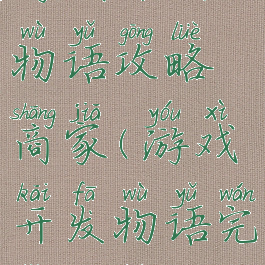 wù yǔ gōng lüè
物语攻略
shāng jiā yóu xì
商家(游戏
kāi fā wù yǔ wán
开发物语完